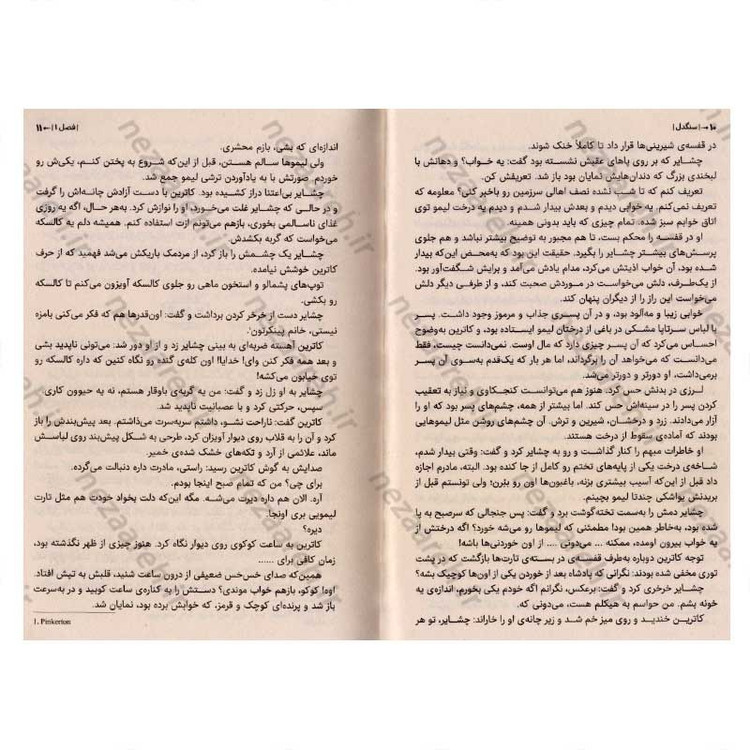 ۱۰ → | سنگدل |
در قفسه‌ی شیرینی‌ها قرار داد تا کاملاً خنک شوند.
چشایر که بر روی پاهای عقبش نشسته بود گفت: یه خواب؟ و دهانش با
لبخندی بزرگ که دندان‌هایش نمایان بود باز شد. تعریفش کن.
تعریف کنم که تا شب نشده نصف اهالی سرزمین رو باخبر کنی؟ معلومه که
تعریف نمی‌کنم. یه خوابی دیدم و بعدش بیدار شدم و دیدم یه درخت لیمو توی
اتاق خوابم سبز شده. تمام چیزی که باید بدونی همینه.
او در قفسه را محکم بست، تا هم مجبور به توضیح بیشتر نباشد و هم جلوی
پرسش‌های بیشتر چشایر را بگیرد. حقیقت این بود که به‌محض این‌که بیدار
شده بود، آن خواب اذیتش می‌کرد، مدام یادش می‌آمد و برایش شگفت‌آور بود.
از یک‌طرف، دلش می‌خواست در موردش صحبت کند، و از طرفی دیگر دلش
می‌خواست این راز را از دیگران پنهان کند.
خوابی زیبا و مه‌آلود بود، و در آن پسری جذاب و مرموز وجود داشت. پسر
با لباس سرتاپا مشکی در باغی از درختان لیمو ایستاده بود، و کاترین به‌وضوح
احساس می‌کرد که آن پسر چیزی دارد که مال اوست. نمی‌دانست چیست، فقط
می‌دانست که می‌خواهد آن را برگرداند، اما هر بار که یک‌قدم به‌سوی آن پسر
برمی‌داشت، او دورتر و دورتر می‌شد.
لرزی در بدنش حس کرد. هنوز هم می‌توانست کنجکاوی و نیاز به تعقیب
کردن پسر را در سینه‌اش حس کند. اما بیشتر از همه، چشم‌های پسر بود که او را
آزار می‌دادند. زرد و درخشان، شیرین و ترش. آن چشم‌های روشن مثل لیموهایی
بودند که آماده‌ی سقوط از درخت هستند.
او خاطرات مبهم را کنار گذاشت و رو به چشایر کرد و گفت: وقتی بیدار شدم،
شاخه‌ی درخت یکی از پایه‌های تختم رو کامل از جا کنده بود. البته، مادرم اجازه
داد قبل از این‌که آسیب بیشتری بزنه، باغبون‌ها اون رو ببرن؛ ولی تونستم قبل از
بریدنش یواشکی چندتا لیمو بچینم.
چشایر دمش را به‌سمت تخته‌گوشت برد و گفت: پس جنجالی که سرصبح به پا
شده بود، به‌خاطر همین بود! مطمئنی که لیموها رو می‌شه خورد؟ اگه درختش از
یه خواب بیرون اومده، ممکنه ... می‌دونی .... از اون خوردنی‌ها باشه!
توجه کاترین دوباره به‌طرف قفسه‌ی در بسته‌ی تارت‌ها بازگشت که در پشت
توری مخفی شده بودند: نگرانی که پادشاه بعد از خوردن یکی از اون‌ها کوچیک بشه؟
چشایر خرخری کرد و گفت: برعکس، نگرانم اگه خودم یکی بخورم، اندازه‌ی یه
خونه بشم. من حواسم به هیکلم هست، می‌دونی که.
کاترین خندید و روی میز خم شد و زیر چانه‌ی او را خاراند: چشایر، تو هر
| فصل ۱ | ← ۱۱
اندازه‌ای که بشی، بازم محشری.
ولی لیموها سالم هستن، قبل از این‌که شروع به پختن کنم، یکی‌ش رو
خوردم. صورتش با به یادآوردن ترشی لیمو جمع شد.
چشایر بی‌اعتنا دراز کشیده بود. کاترین با دست آزادش چانه‌اش را گرفت
و در حالی که چشایر غلت می‌خورد، او را نوازش کرد. به‌هر حال، اگه یه روزی
غذای ناسالمی بخوری، بازهم می‌تونم ازت استفاده کنم. همیشه دلم یه کالسکه
می‌خواست که گربه بکشدش.
چشایر یک چشمش را باز کرد، از مردمک باریکش می‌شد فهمید که از حرف
کاترین خوشش نیامده.
توپ‌های پشمالو و استخون ماهی رو جلوی کالسکه آویزون می‌کنم تا کالسکه
رو بکشی.
چشایر دست از خرخر کردن برداشت و گفت: اون‌قدرها هم که فکر می‌کنی بامزه
نیستی، خانم پینکرتون¹.
کاترین آهسته ضربه‌ای به بینی چشایر زد و از او دور شد: می‌تونی ناپدید بشی
و بعد همه فکر کنن وای! خدایا! اون کله‌ی گنده رو نگاه کنین که داره کالسکه رو
توی خیابون می‌کشه!
چشایر به او زل زد و گفت: من یه گربه‌ی باوقار هستم، نه یه حیوون کاری.
سپس، حرکتی کرد و با عصبانیت ناپدید شد.
کاترین گفت: ناراحت نشو، داشتم سربه‌سرت می‌ذاشتم. بعد پیش‌بندش را باز
کرد و آن را به قلاب روی دیوار آویزان کرد، طرحی به شکل پیش‌بند روی لباسش
ماند، علائمی از آرد و تکه‌های خشک شده‌ی خمیر.
صدایش به گوش کاترین رسید: راستی، مادرت داره دنبالت می‌گرده.
برای چی؟ من که تمام صبح اینجا بودم.
آره. الان هم داره دیرت می‌شه. مگه این‌که دلت بخواد خودت هم مثل تارت
لیمویی بری اونجا.
دیره؟
کاترین به ساعت کوکوی روی دیوار نگاه کرد. هنوز چیزی از ظهر نگذشته بود،
زمان کافی برای ......
همین‌که صدای خس‌خس ضعیفی از درون ساعت شنید، قلبش به تپش افتاد.
اوه! کوکو، بازهم خواب موندی؟ دستش را به کناره‌ی ساعت کوبید و در به‌سرعت
باز شد و پرنده‌ای کوچک و قرمز، که خوابش برده بود، نمایان شد.
1. Pinkerton
nezamehrah.ir